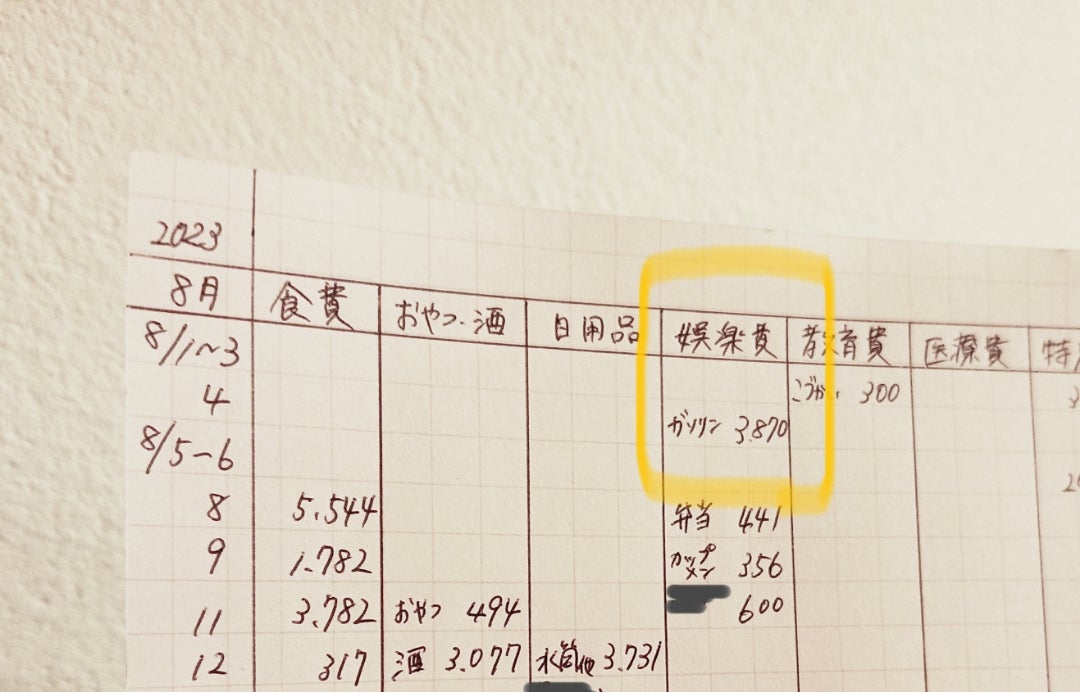 2023
8月 食費 おやつ・酒 日用品 娯楽費 教育費 医療費 特
8/1~3
4 こづかい 300 3
8/5-6 ガソリン 3.870
8 5.544 弁当 441
9 1.782 カップメン 356
11 3.782 おやつ 494 600
12 317 酒 3.077 水筒他 3.731